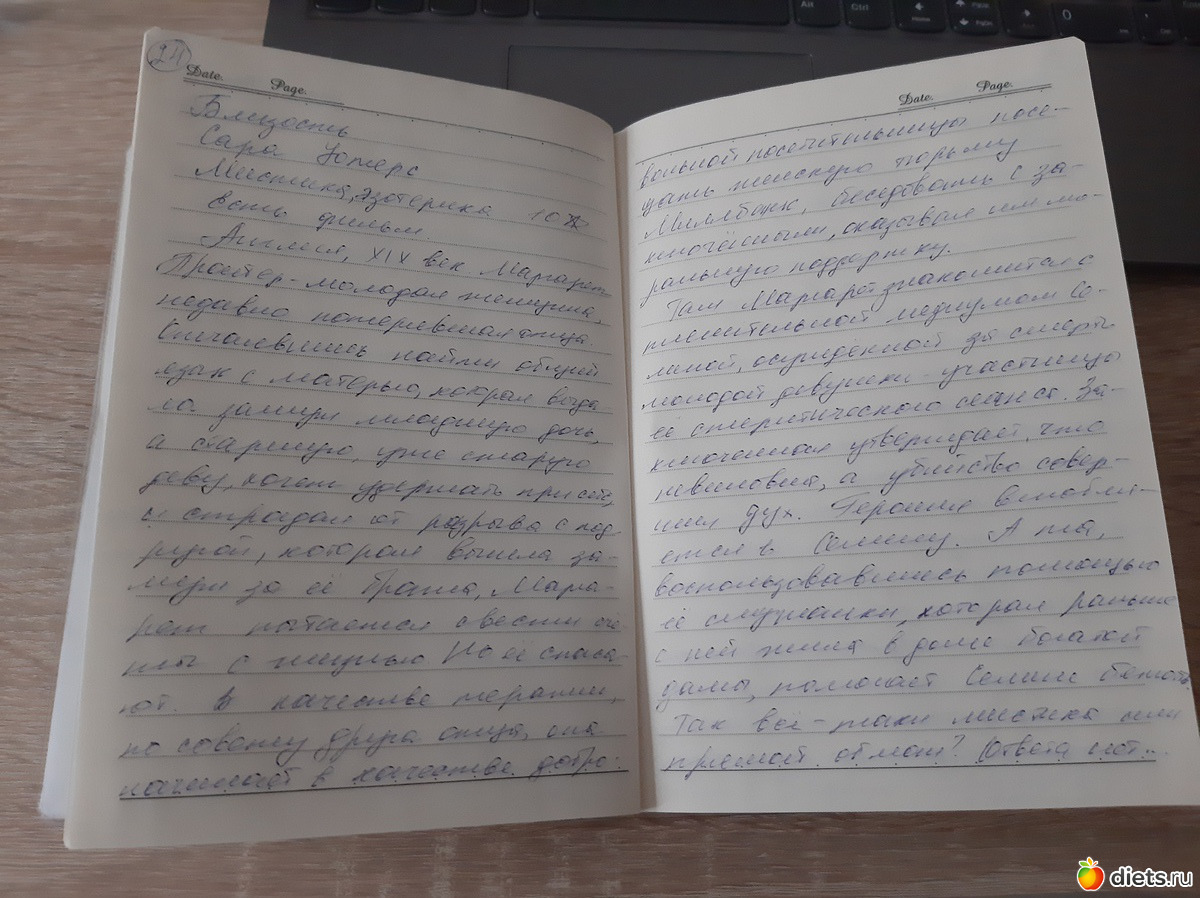 24
Date. Page.
Близость
Сара Уотерс
Мистика, эзотерика 10
Есть фильм.
Англия, XIX век. Маргарет
Прайтер - молодая женщина,
недавно потерявшая отца.
Отчаявшись найти общий
язык с матерью, которая выда
ла замуж младшую дочь,
а старшую, уже старую
деву, хочет удержать при себе,
и страдая от разрыва с под
ругой, которая вышла за-
муж за её брата, Марга-
рет пытается свести счё
ты с жизнью. Но её спаса-
ют. В качестве терапии,
по совету друга отца, она
начинает в качестве добро-
Date. Page.
вольной посетительницы посе-
щать женскую тюрьму
Миллбанк, беседовать с за-
ключёнными, оказывая им мо-
ральную поддержку.
Там Маргарет знакомится с
пленительной медиумом Се-
линой, осуждённой за смерть
молодой девушки - участницы
её спиритического сеанса. За-
ключённая утверждает, что
невиновна, а убийство совер-
шил дух. Героиня влюбля-
ется в Селину. А та,
воспользовавшись помощью
её служанки, которая раньше
с ней жила в доме богатой
дамы, помогает Селине бежать.
Так всё-таки мистика или
прямой обман? Ответа нет...
diets.ru